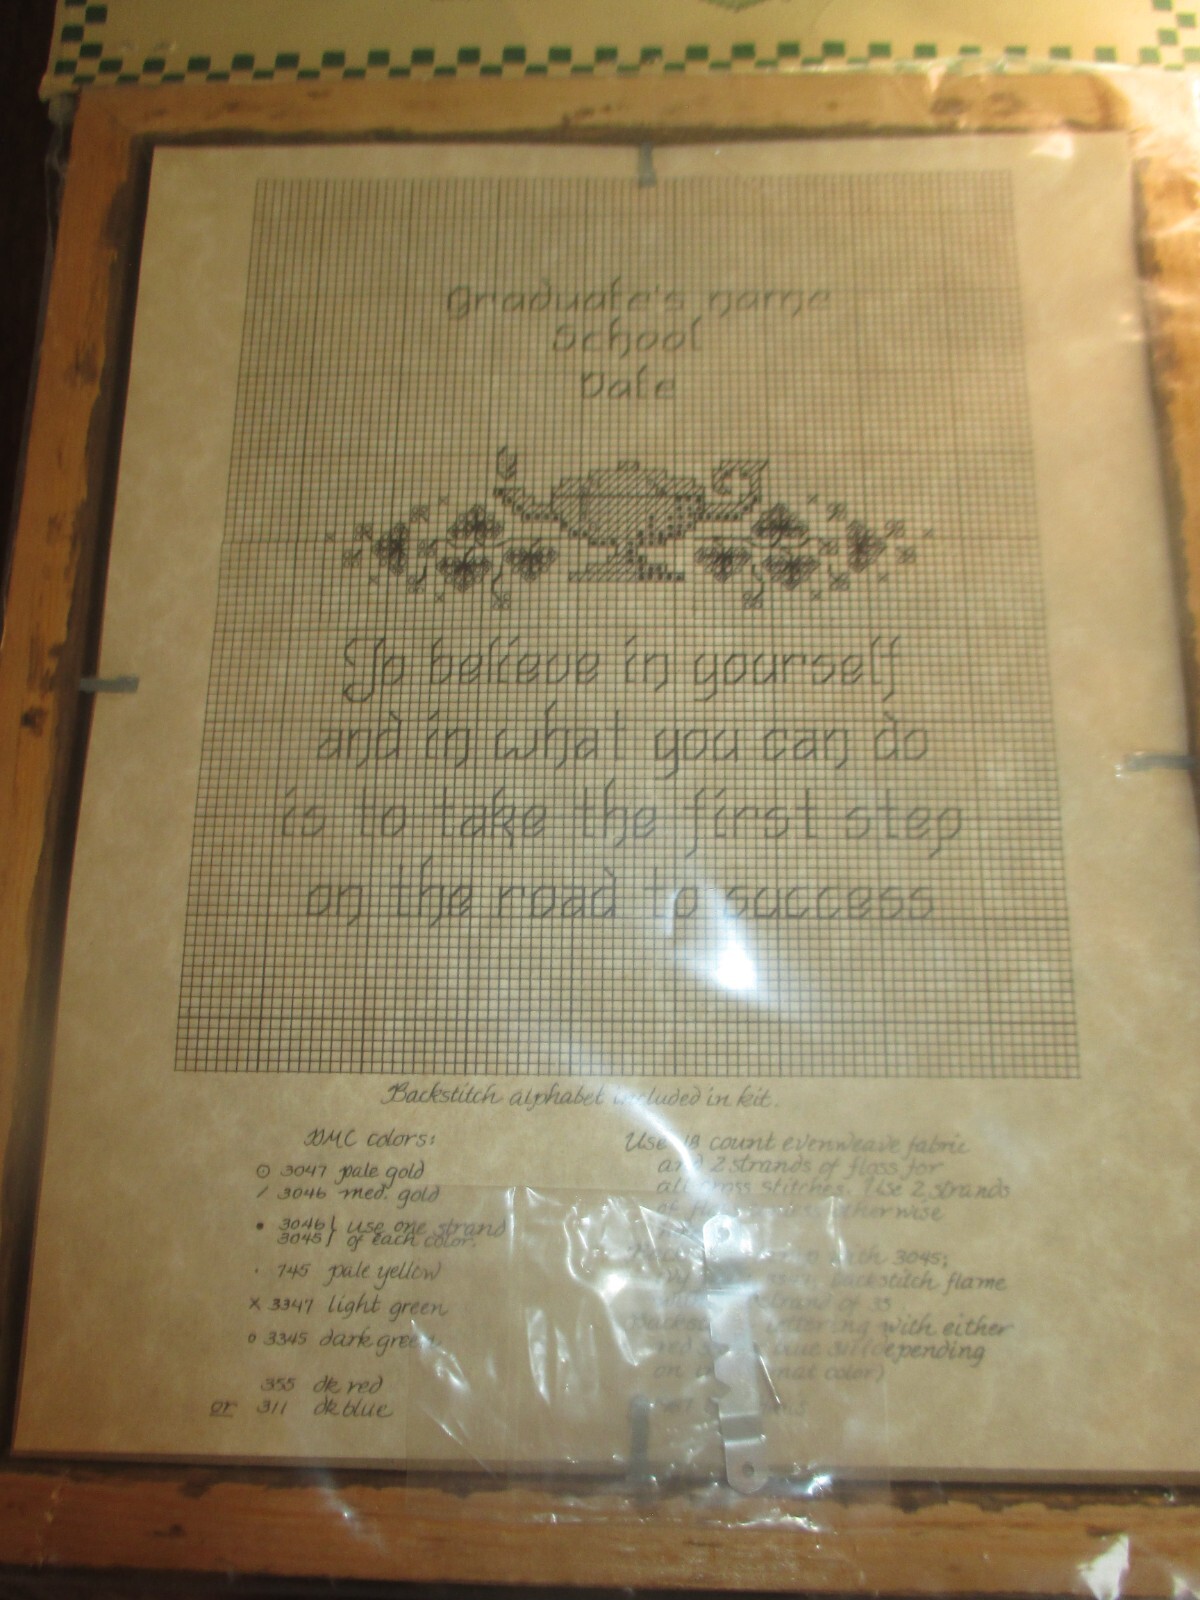 Graduate's name
School
Date
To believe in yourself
and in what you can do
is to take the first step
on the road to success
Backstitch alphabet included in kit.
DMC colors:
3047 pale gold
/ 3046 med. gold
• 3046 } use one strand
3045 } of each color.
· 745 pale yellow
x 3347 light green
o 3345 dark green
355 dk red
or 311 dk blue
Use 18 count evenweave fabric
and 2 strands of floss for
all cross stitches. Use 2 strands
of otherwise
with 3045;
backstitch flame
strand of 35
lettering with either
311 (depending
on color)